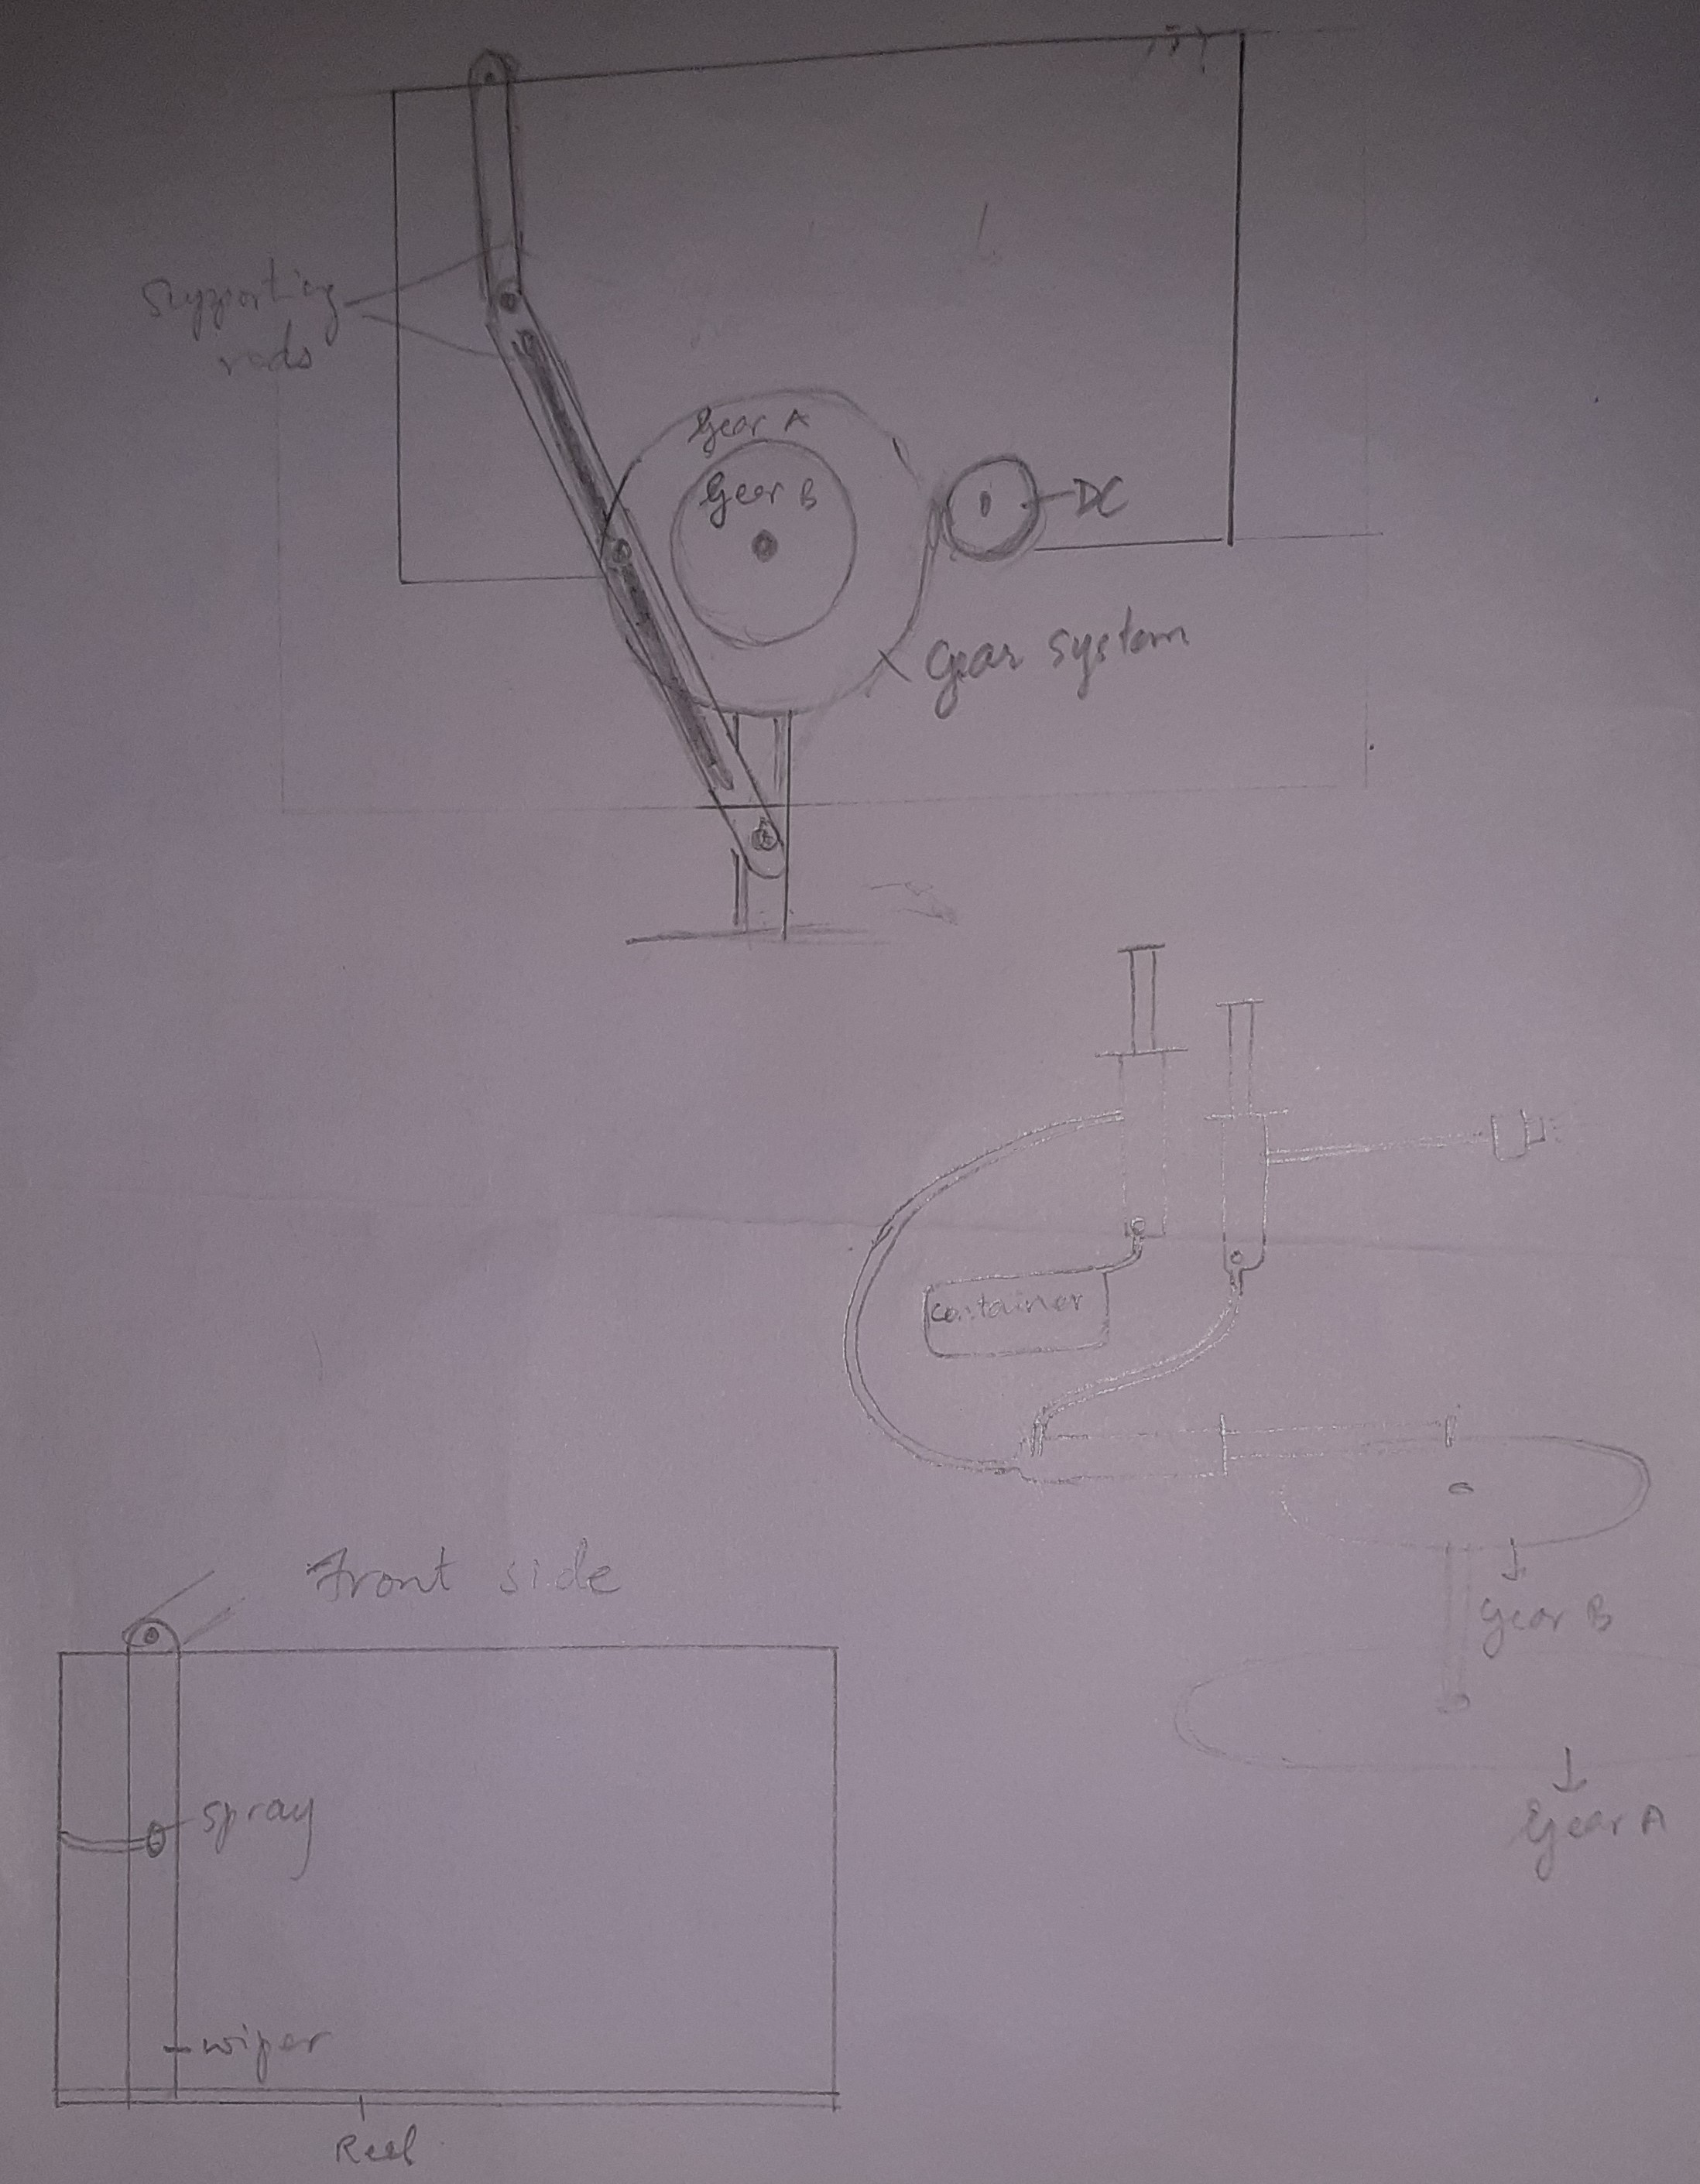 Supporting
rods
Gear A
Gear B
DC
Gear system
container
Gear B
Gear A
Front side
spray
wiper